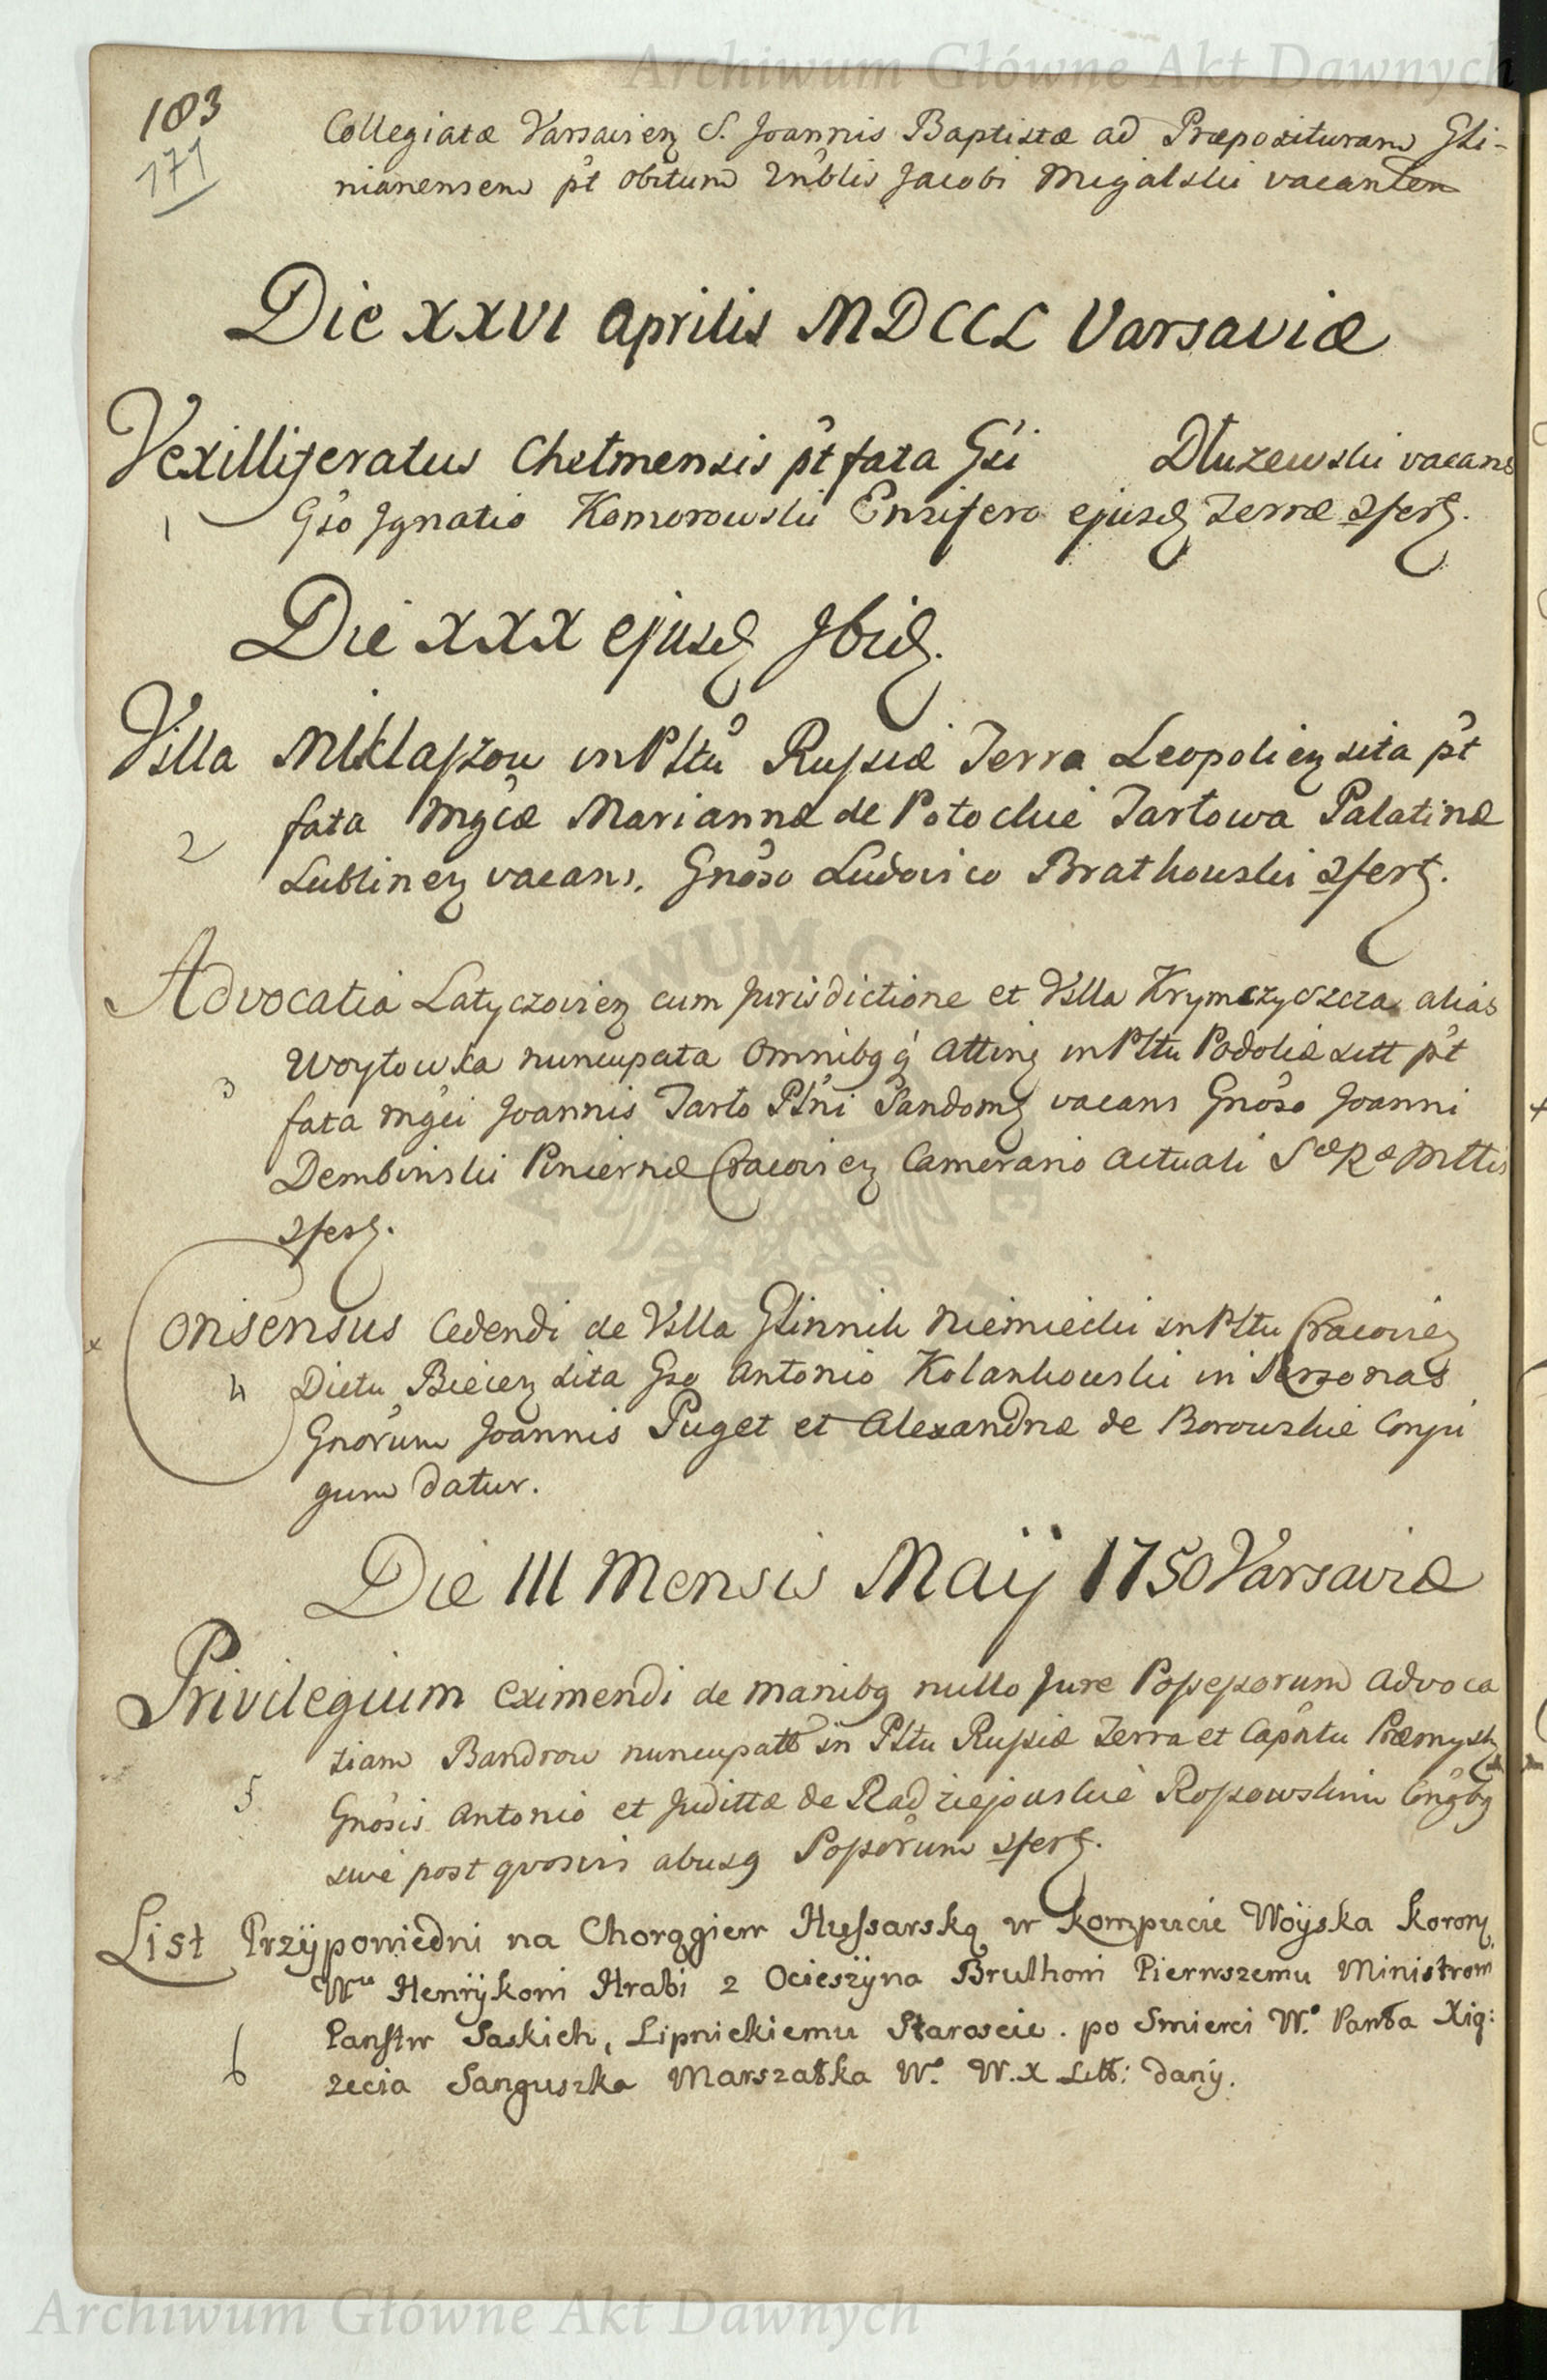 Archiwum Główne Akt Dawnych
183
171
Collegiatæ Varsavien S. Joannis Baptistæ ad Præposituram Gli-
nianensem p̃t obitum Jacobi Migalski vacantem
Die XXVI Aprilis MDCCL Varsaviæ
Vexilliferatus Chełmensis p̃t fata Gsi Dłuzewski vacans
1 Gso Ignatio Komorowski Ensifero ejusd Terræ 2fert.
Die XXX ejusd Ibid.
Villa Miklaszow in Pltu Russiæ Terra Leopolien sita p̃t
2 fata Mgcæ Mariannæ de Potockie Tarłowa Palatinæ
Lublinen vacans. Gnoso Ludovico Bratkowski 2fert.
Advocatia Latyczovien cum Jurisdictione et Villa Krymczyszcza alias
Woytowka nuncupata Omnibq q Attinen in Pltu Podoliæ sitt p̃t
3 fata Mgci Joannis Tarło Pltni Sandom vacans Gnoso Joanni
Dembinski Pincernæ Cracovien Camerario Actuali S æ R æ Mttis
2fert.
Consensus Cedendi de Villa Glinnik Niemiecki in Pltu Cracovien
4 Dictu Biecen sita Gso Antonio Kolankowski in Personas
Gnorum Joannis Puget et Alexandræ de Borowskie Conju
gum datur.
Die III Mensis Maij 1750 Varsaviæ
Privilegium Eximendi de manibq nullo Jure Possessorum Advoca
tiam Bandrow nuncupatt in Pltu Russiæ Terra et Capntu Præmysl
5 Gnosis Antonio et Judittæ de Radziejowskie Rossowskim Congbq
sive post quosvis abusq Possorum 2fert.
List Przypowiedni na Chorągiew Hussarską w kompucie Woyska koron
Wu Henrykowi Hrabi z Ocieszyna Bruthowi Pierwszemu Ministrowi
Panstw Saskich, Lipnickiemu Staroscie. po Smierci W.o Pawła Xią:
6 zecia Sanguszka Marszałka W.o W. X Litt: dany.
Archiwum Główne Akt Dawnych